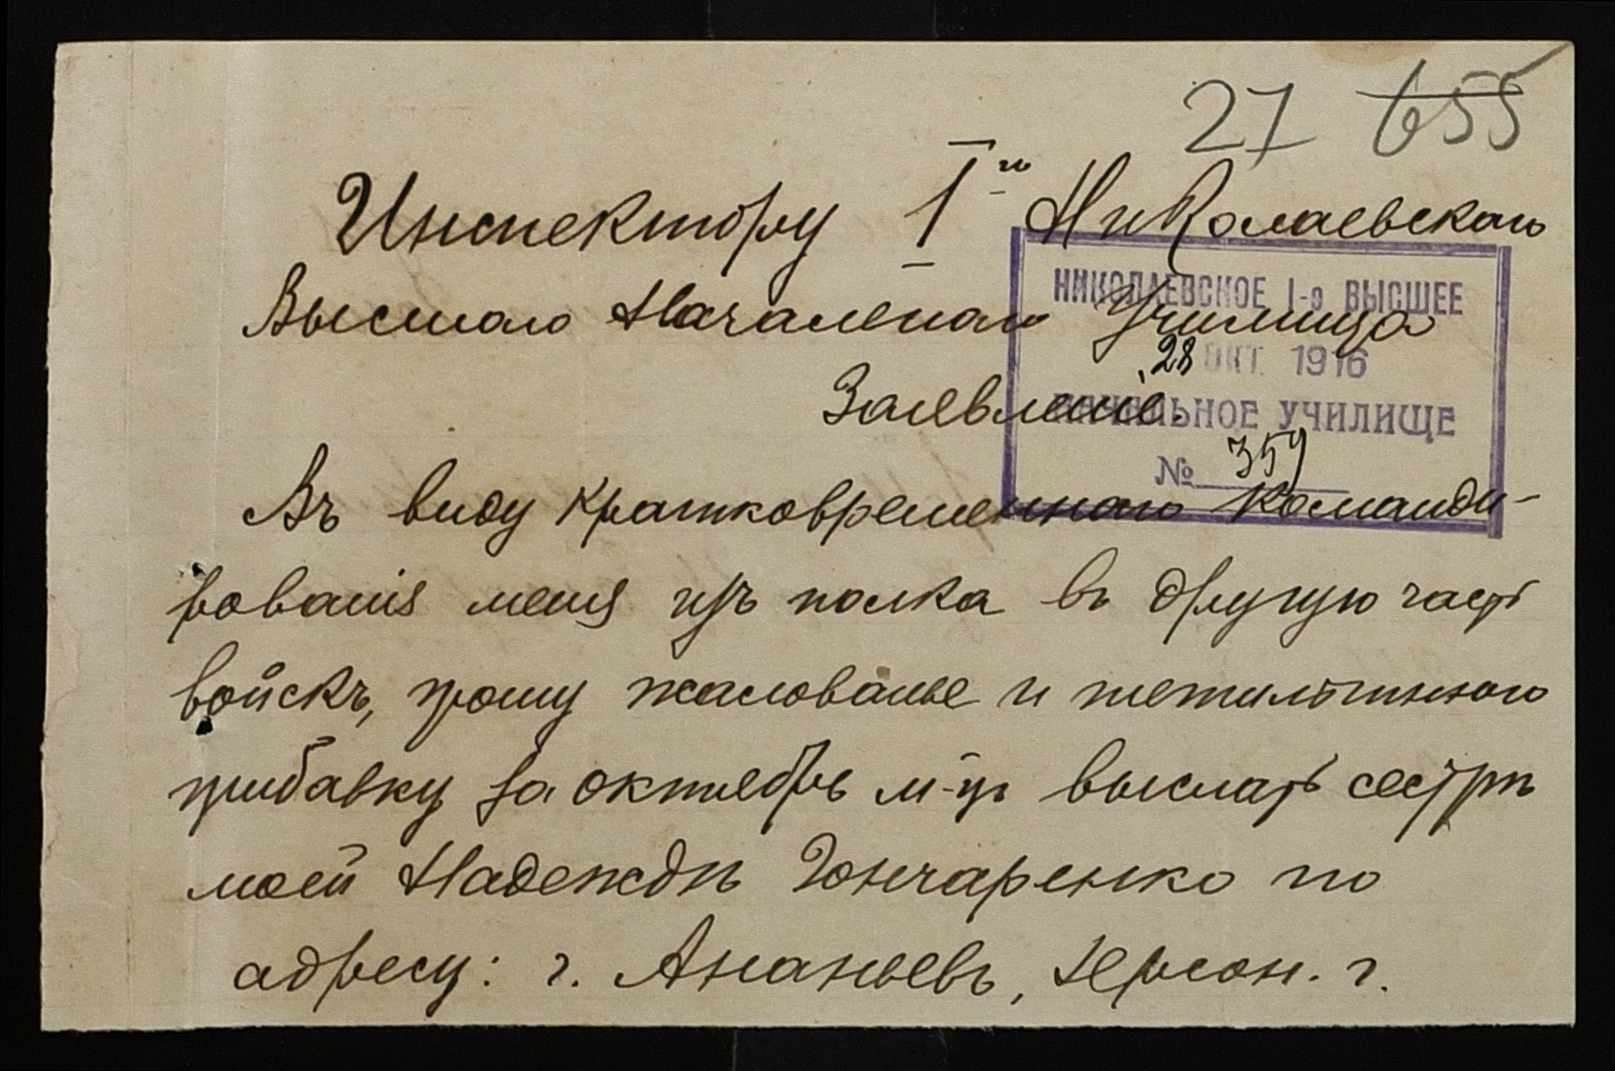 27 655
Инспектору I го Николаевскаго
Высшаго Начальнаго Училища
НИКОЛАЕВСКОЕ I-е ВЫСШЕЕ
28 ОКТ. 1916
НАЧАЛЬНОЕ УЧИЛИЩЕ
№ 359
Заявленіе.
Въ виду кратковременнаго команди-
рованія меня изъ полка въ другую часть
войскъ, прошу жалованье и
прибавку за октябрь м-цъ выслать сестрѣ
моей Надеждѣ Гончаренко по
адресу: г. Ананьевъ, Херсон. г.